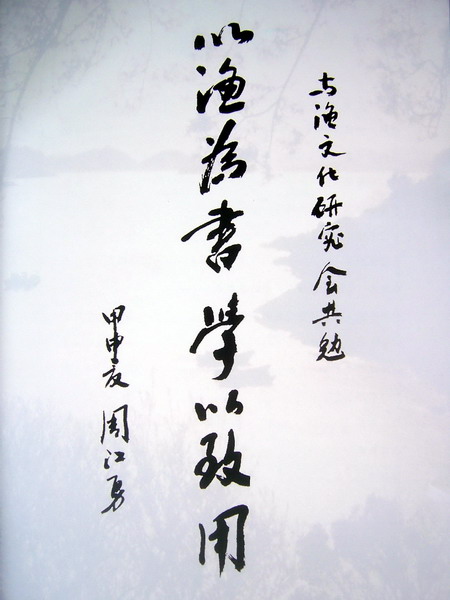 与渔文化研究会共勉
以渔為書學以致用
甲申夏 周江勇